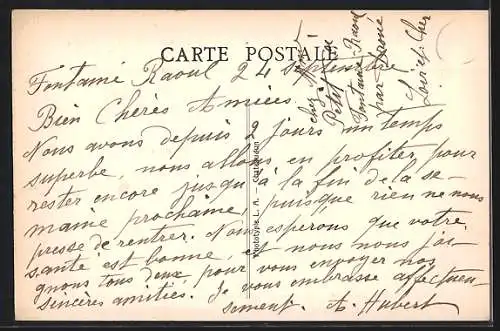 CARTE POSTALE
Fontaine Raoul 24 Septembre
Bien Chères Amiées
Nous avons depuis 2 jours un temps
superbe, nous allons en profiter pour
rester encore jusqu'à la fin de la se-
maine prochaine, puisque rien ne nous
presse de rentrer. Nous esperons que votre
santé est bonne, et nous nous joi-
gnons tous deux pour vous envoyer nos
sincères amitiés. Je vous embrasse affectueu-
sement. A. Hubert
chez
Petit
Fontaine-Raoul
par Droué
Loir et Cher
Phototypie L. A. - Châteaudun